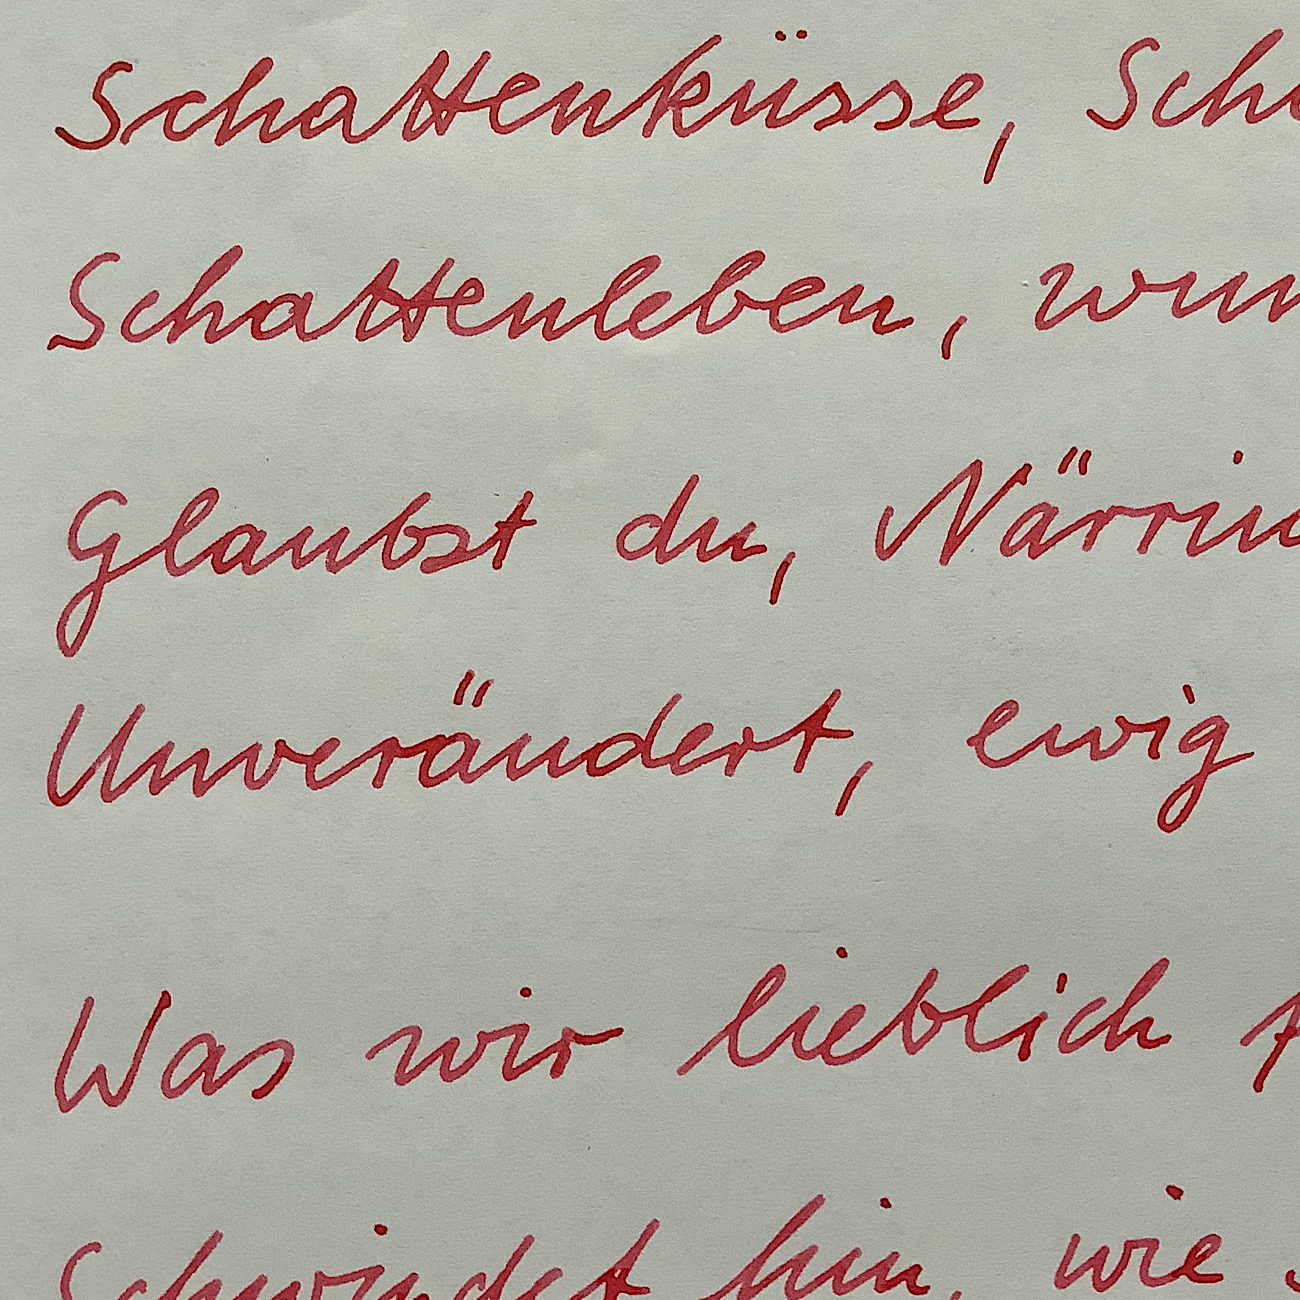 Schattenküsse, Sch
Schattenleben, wun
Glaubst du, Närrin
Unverändert, ewig
Was wir lieblich
Schwindet hin, wie